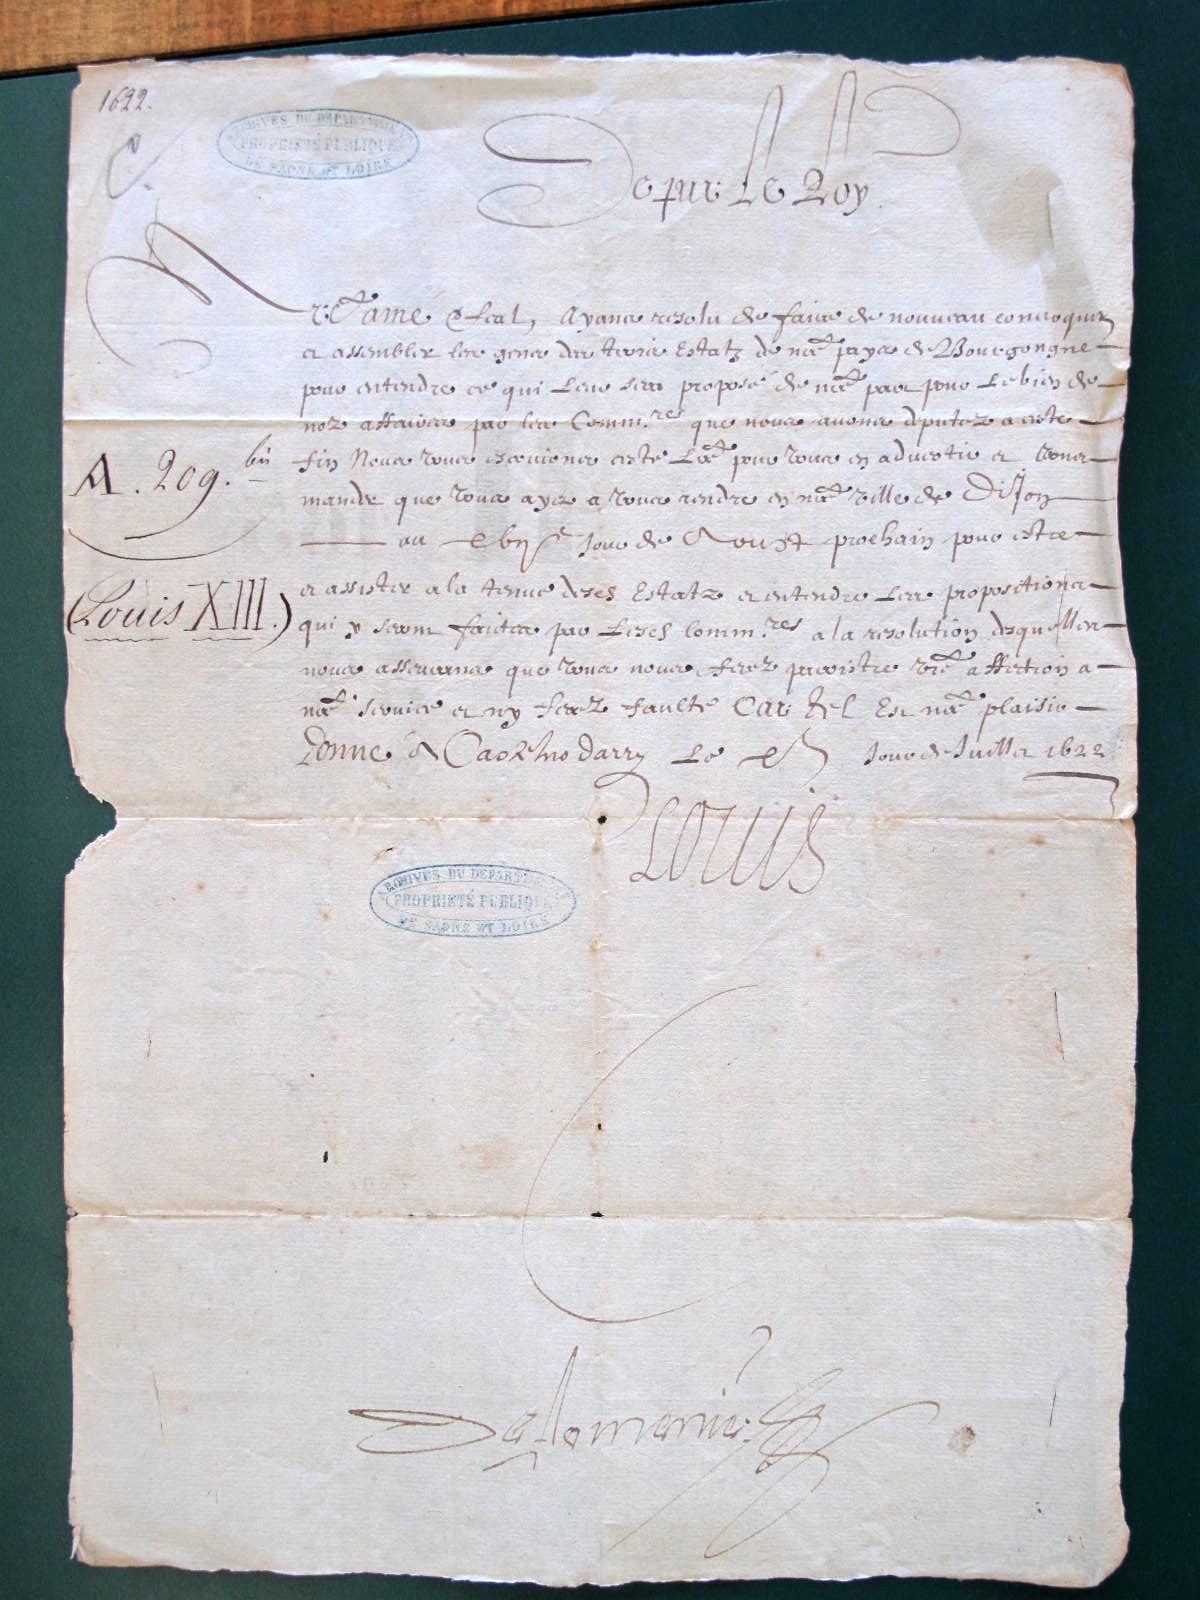 1622.
ARCHIVES DU DEPARTEMENT
PROPRIÉTÉ PUBLIQUE
DE SAONE ET LOIRE
De par Le Roy.
Nr̃e amé & feal, Ayant resolu de faire de nouveau convoquer
et assembler les gens des trois Estatz de nr̃e pays de Bourgongne
pour entendre ce qui Leur sera proposé de nr̃e part pour Le bien de
noz affaires par les Comm.res que nous avons deputez a ceste
A. 209. bis
fin Nous vous escrivons ceste Lr̃e pour vous en advertir et
mander que vous ayez a vous rendre en nr̃e ville de Dijon
au jour de Aoust prochain pour estre
et assister a la tenue desd Estatz et entendre Les propositions
(Louis XIII.)
qui y seront faictes par Lesd Comm.res a la resolution desquelles
nous asseurans que vous nous ferez paroistre vr̃e affection a
nr̃e service et ny ferez faulte Car tel Est nr̃e plaisir
Donné a Le Jour de Juillet 1622
Louis
ARCHIVES DU DEPARTEMENT
PROPRIÉTÉ PUBLIQUE
DE SAONE ET LOIRE
De Lomenie